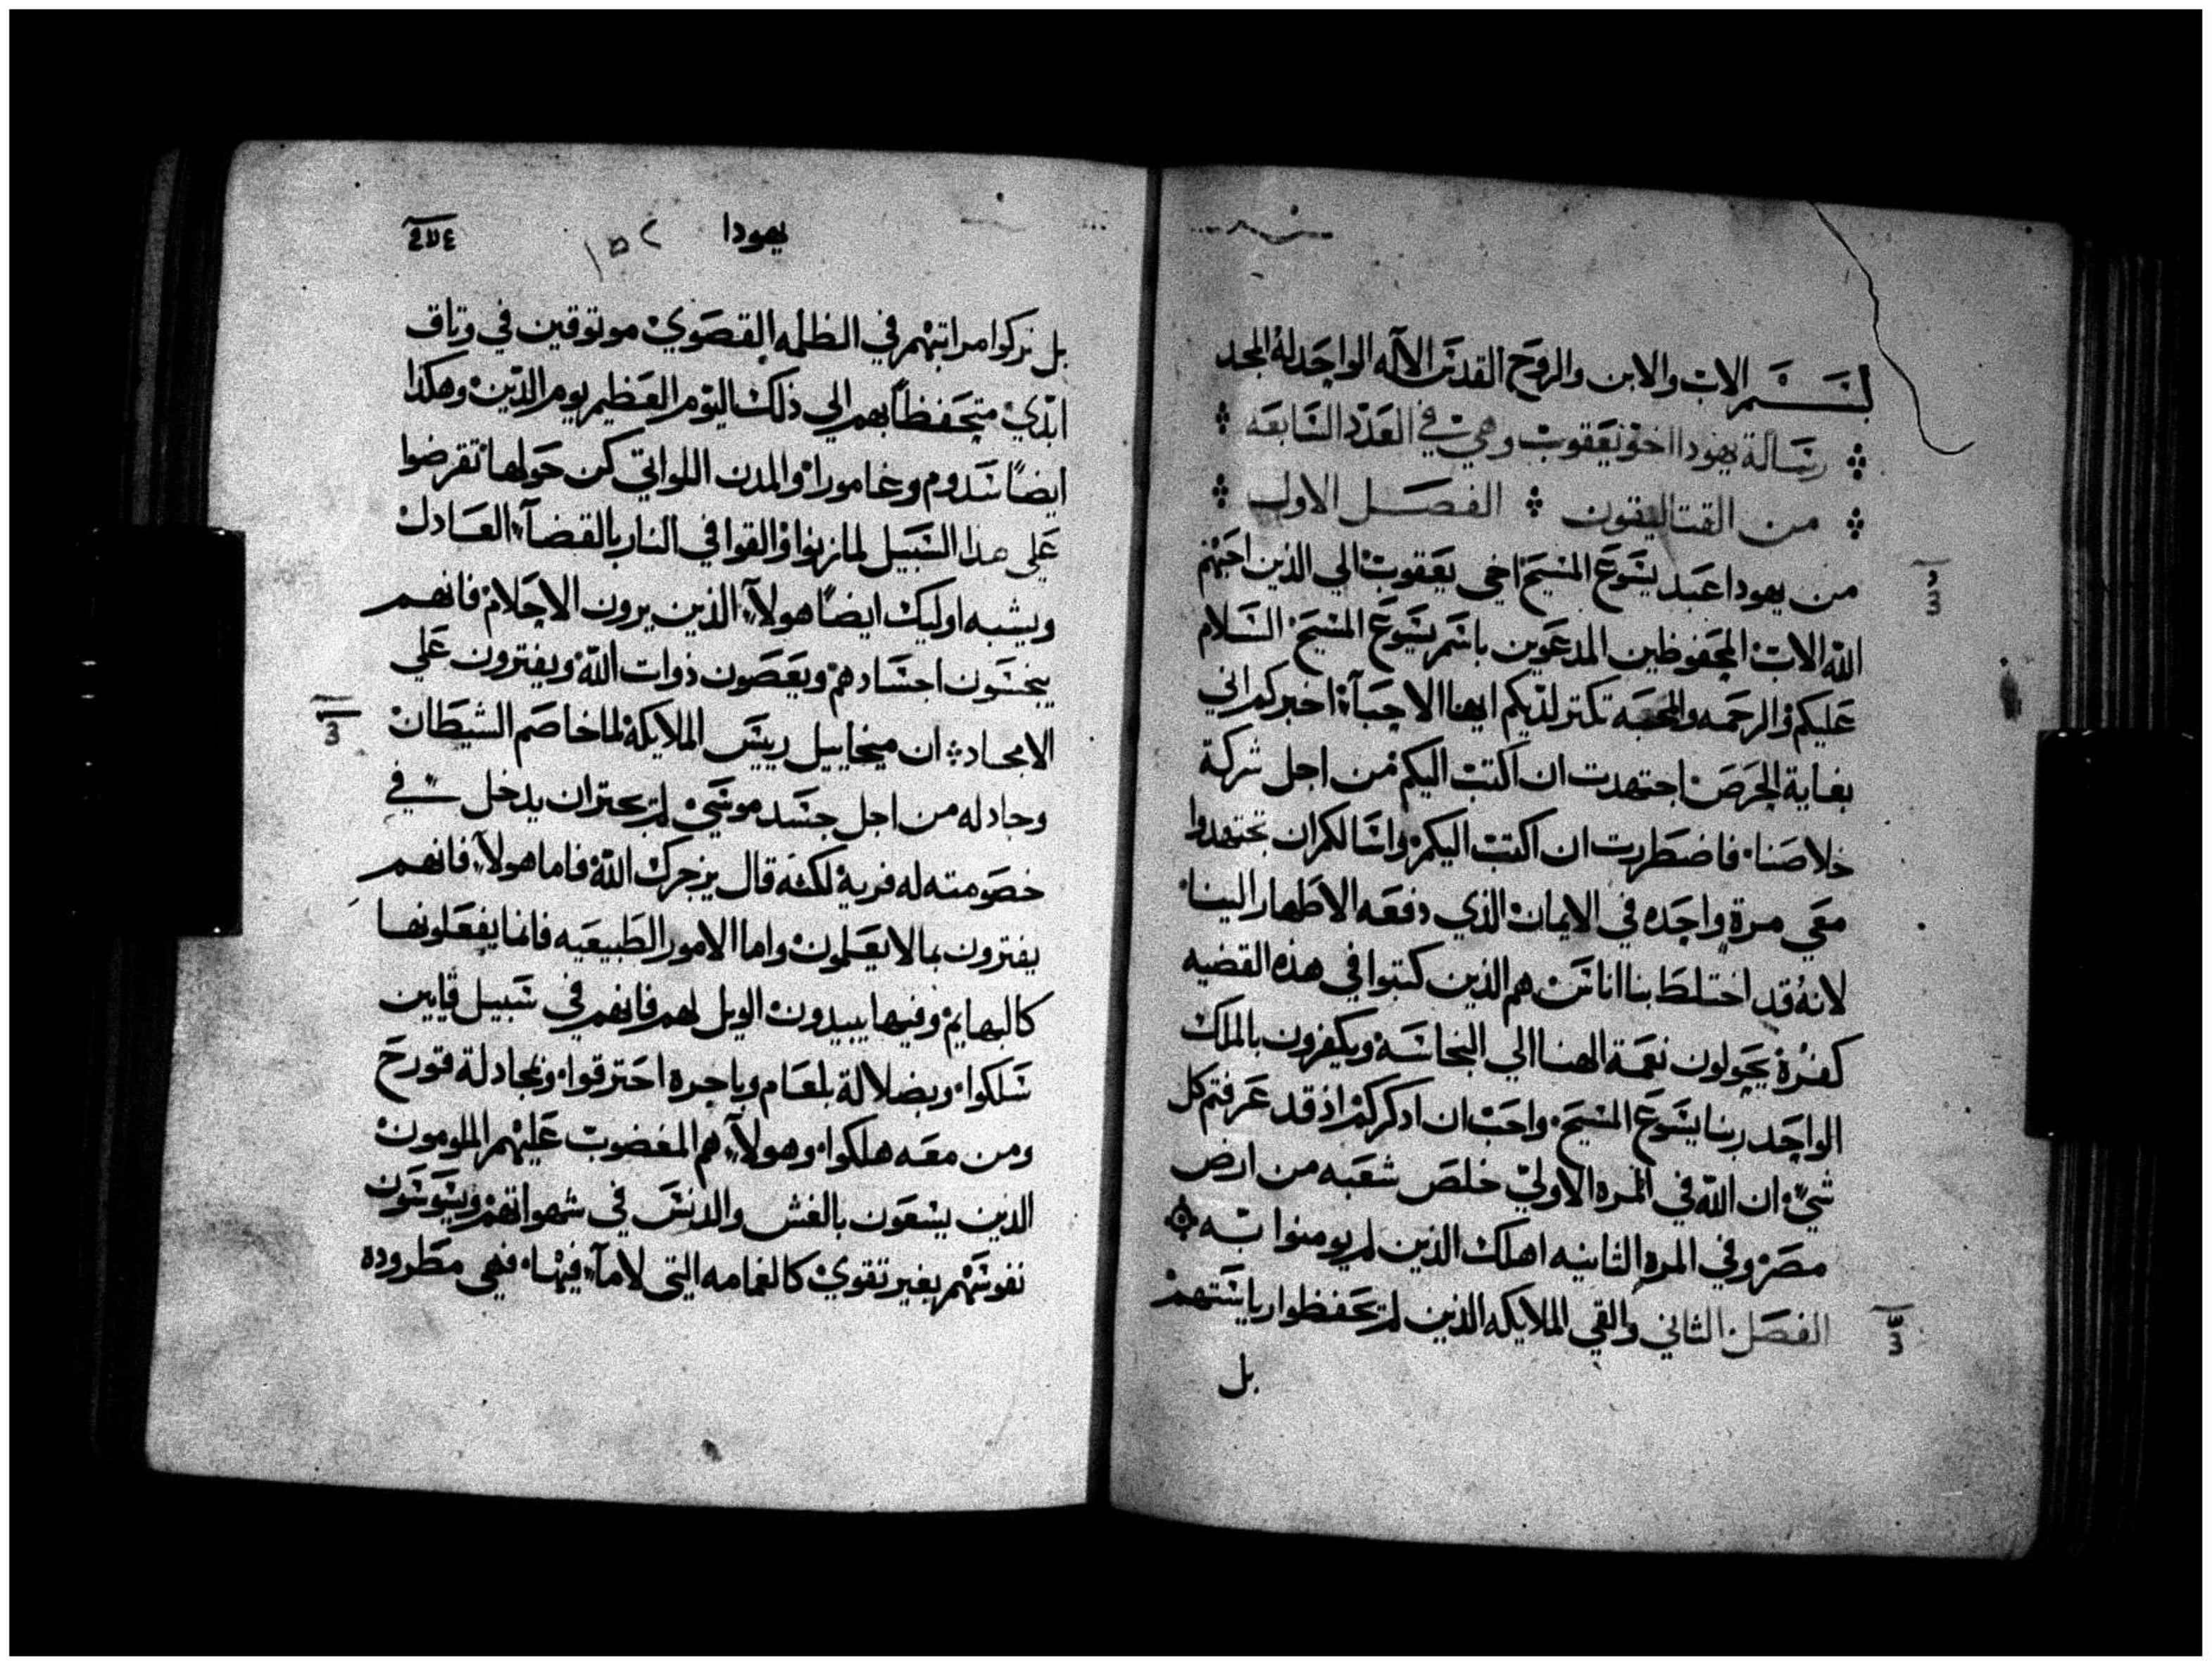 بسم الاب والابن والروح القدس الاله الواحد له المجد
رساله يهودا اخو يعقوب وهي في العدد السابعه
من القتاليقون الفصل الاول
من يهودا عبد يسوع المسيح اخي يعقوب الي الذين احبهم
الله الاب المحفوظين المدعوين باسم يسوع المسيح السلام
عليكم والرحمه والمحبه تكتر لديكم ايها الاحبآء اخبركم اني
بغاية الحرص اجتهدت ان اكتب اليكم من اجل شركة
خلاصنا فاضطررت ان اكتب اليكم واسالكم ان تجتهدوا
معي مرة واحده في الايمان الذي دفعه الاطهار الينا
لانه قد اختلط بنا اناس هم الذين كتبوا في هذه القضيه
كفرة يحولون نعمة الهنا الي النجاسة ويكفرون بالملك
الواحد ربنا يسوع المسيح واحب ان اذكركم اذ قد عرفتم كل
شيء ان الله في المره الاولي خلص شعبه من ارض
مصر وفي المره الثانيه اهلك الذين لم يومنوا به
الفصل الثاني والقي الملايكه الذين لم يحفظوا رياستهم
بل
يهودا
بل تركوا مراتبهم في الظلمه القصوي موتوقين في وتاق
ابدي متحفظاً بهم الي ذلك اليوم العظيم يوم الدين وهكذا
ايضاً سدوم وغامورا والمدن اللواتي كن حولها تقرضوا
علي هذا السبيل لما زنوا والقوا في النار بالقضآء العادل
ويشبه اوليك ايضاً هولآء الذين يرون الاحلام فانهم
ينجسون اجسادهم ويعصون ذوات الله ويفترون علي
الامجاد ان ميخاييل رييس الملايكة لما خاصم الشيطان
وجادله من اجل جسد موسي لم يجتر ان يدخل في
خصومته له فرية لكنه قال يزجرك الله فاما هولآء فانهم
يفترون بما لا يعلمون واما الامور الطبيعيه فانما يفعلونها
كالبهايم وفيها يبيدون الويل لهم فانهم في سبيل قايين
سلكوا وبضلالة بلعام وباجره احترقوا وبمجادلة قورح
ومن معه هلكوا وهولآء هم المغضوب عليهم الملومون
الذين يسعون بالغش والدنس في شهواتهم ويسوسون
نفوسهم بغير تقوي كالغمامه التي لا مآء فيها فهي مطروده